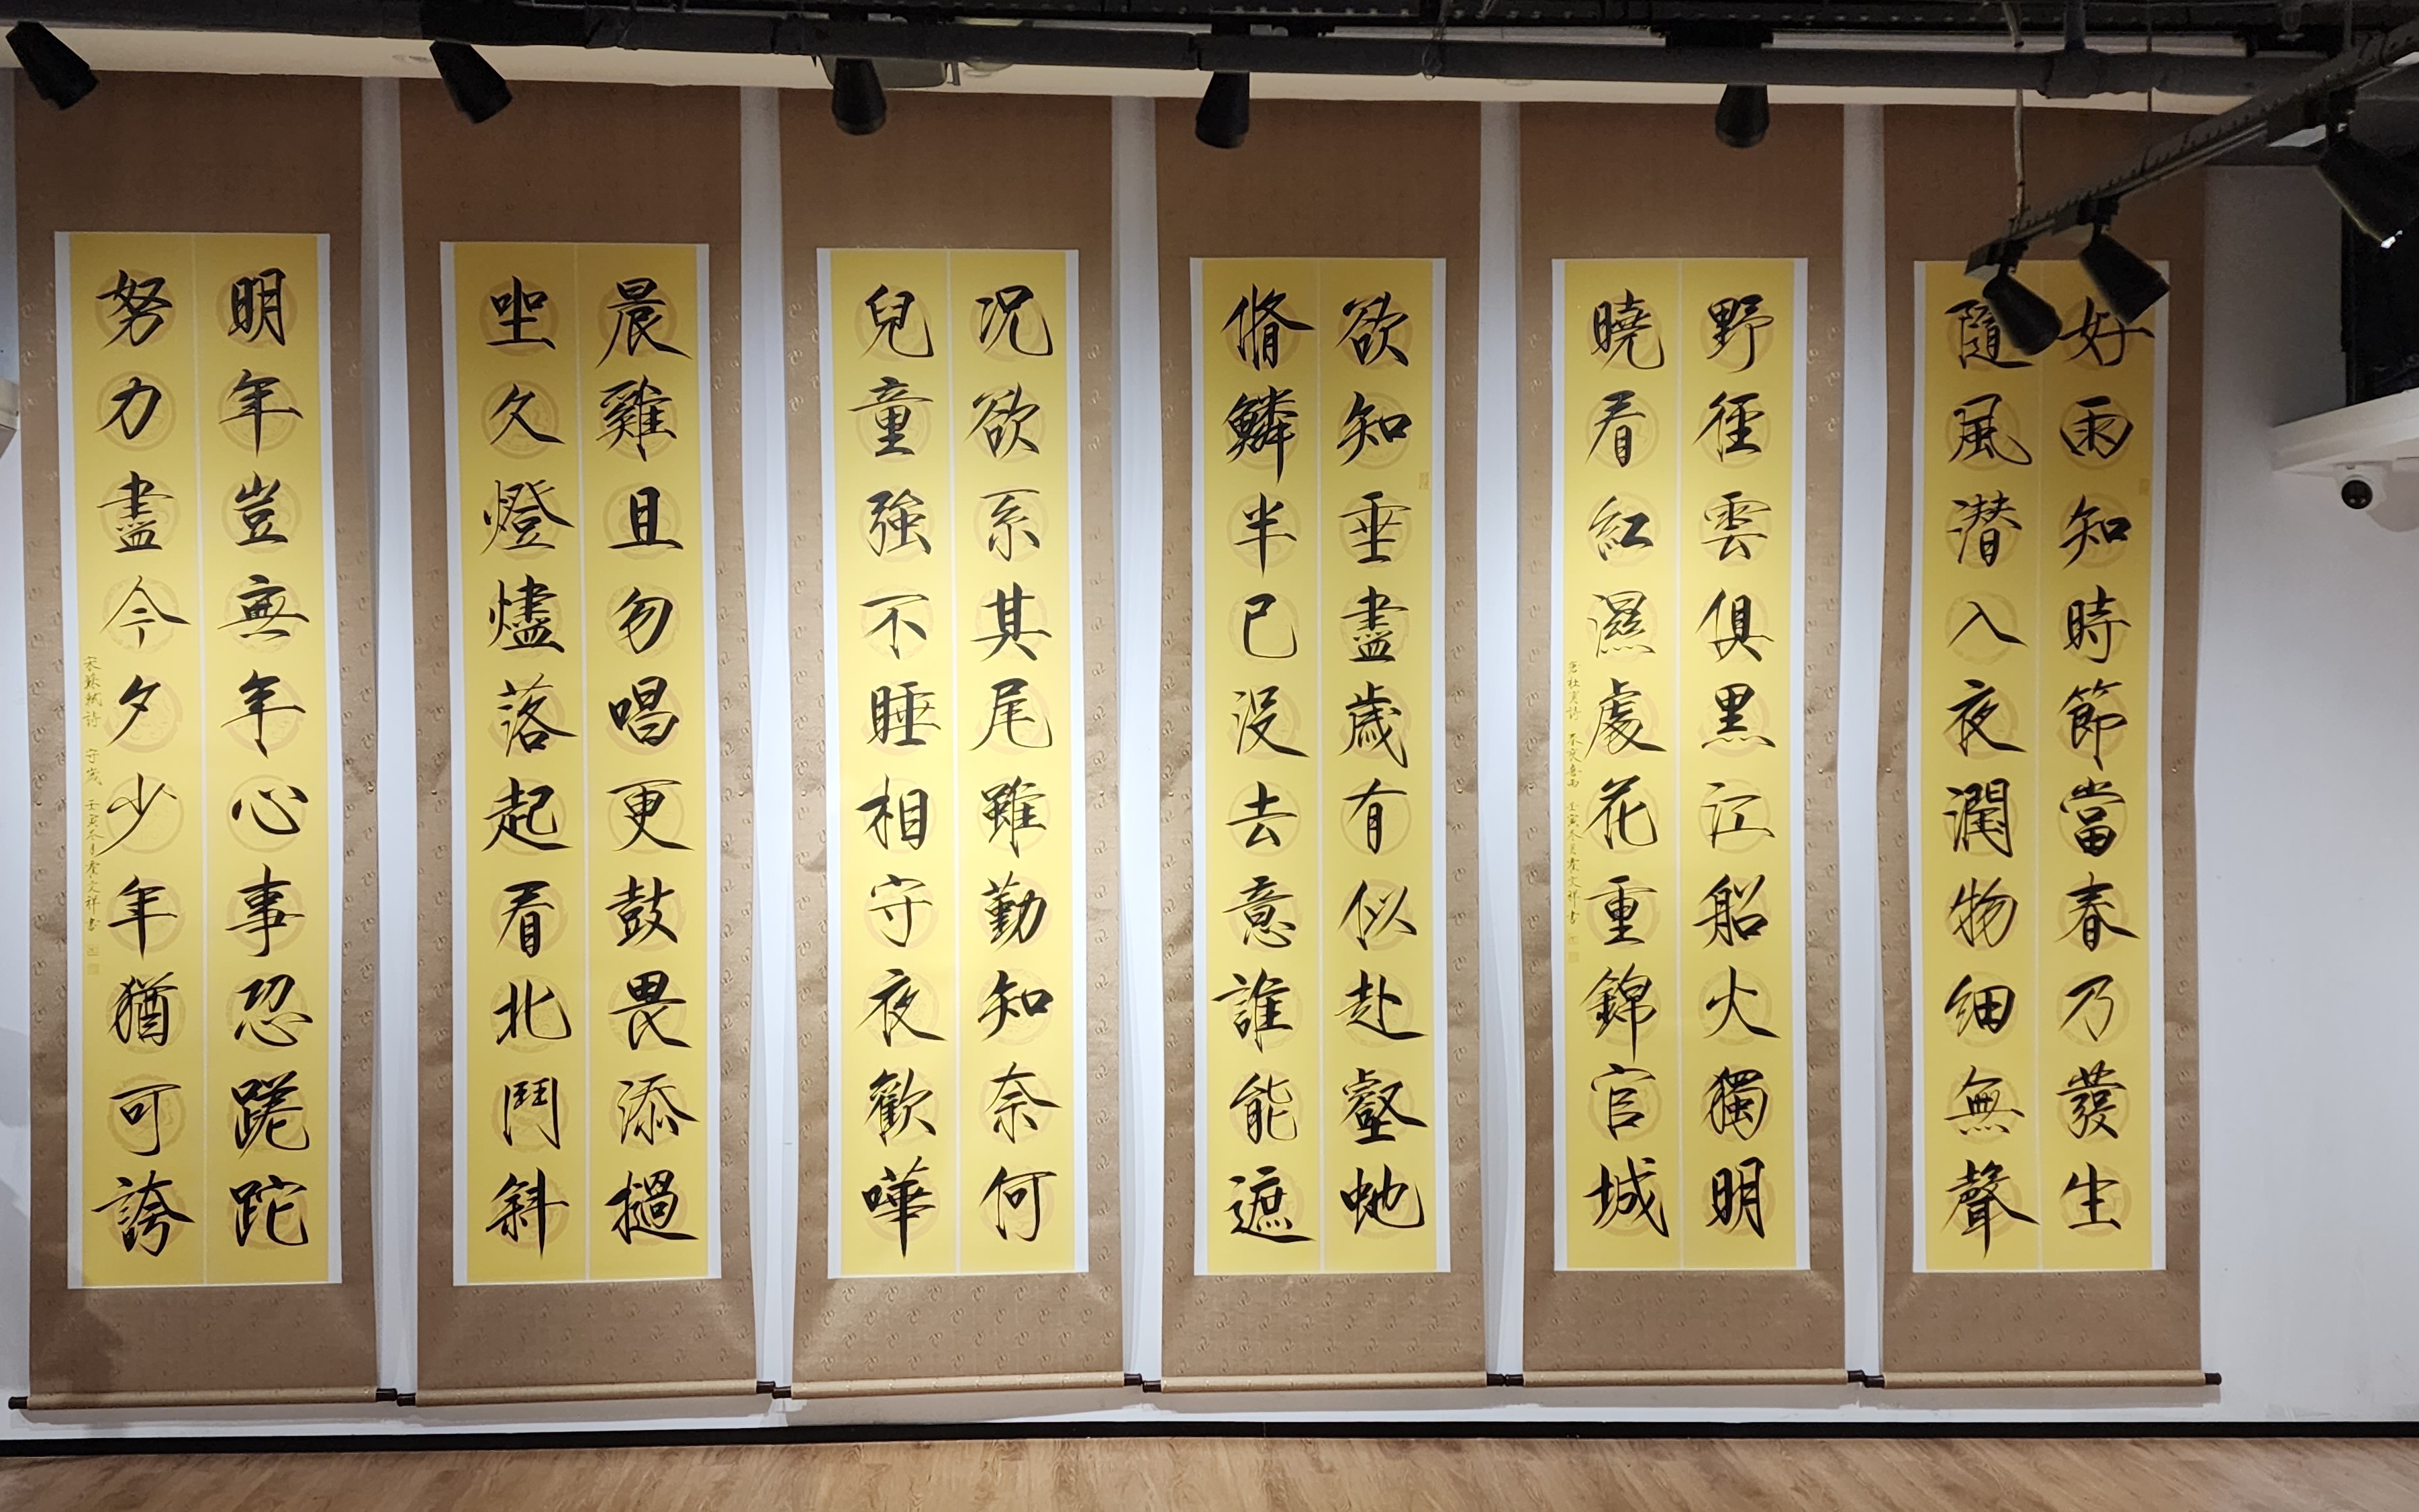 好雨知時節當春乃發生
隨風潜入夜潤物細無聲
野徑雲俱黑江船火獨明
曉看紅濕處花重錦官城
唐杜甫詩 春夜喜雨 壬寅冬月 文祥書
欲知垂盡歲有似赴壑虵
脩鱗半已没去意誰能遮
况欲系其尾雖勤知奈何
兒童強不睡相守夜歡嘩
晨雞且勿唱更鼓畏添撾
坐久燈燼落起看北鬥斜
明年豈無年心事恐蹉跎
努力盡今夕少年猶可誇
宋蘇軾詩 守歲 壬寅冬月 文祥書